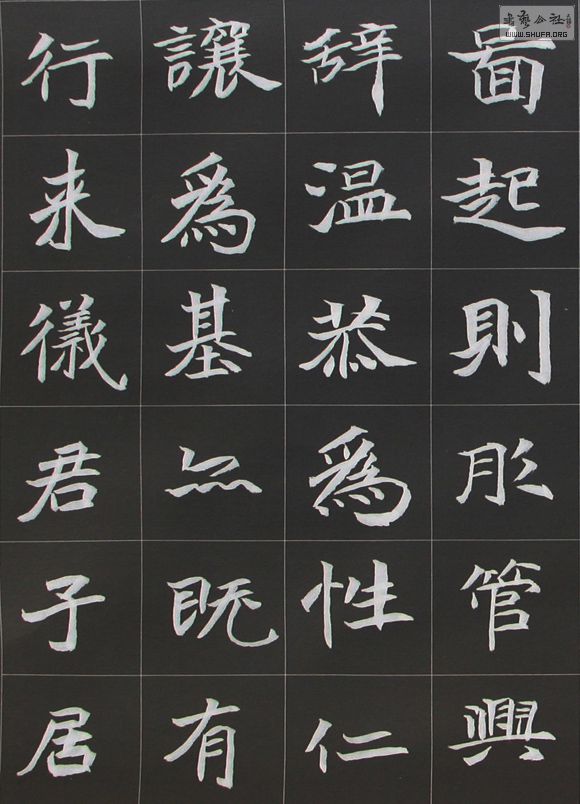 啚起則彤管興
辞温恭爲性仁
讓爲基既有
行来儀君子居
书艺公社
WWW.SHUFA.ORG